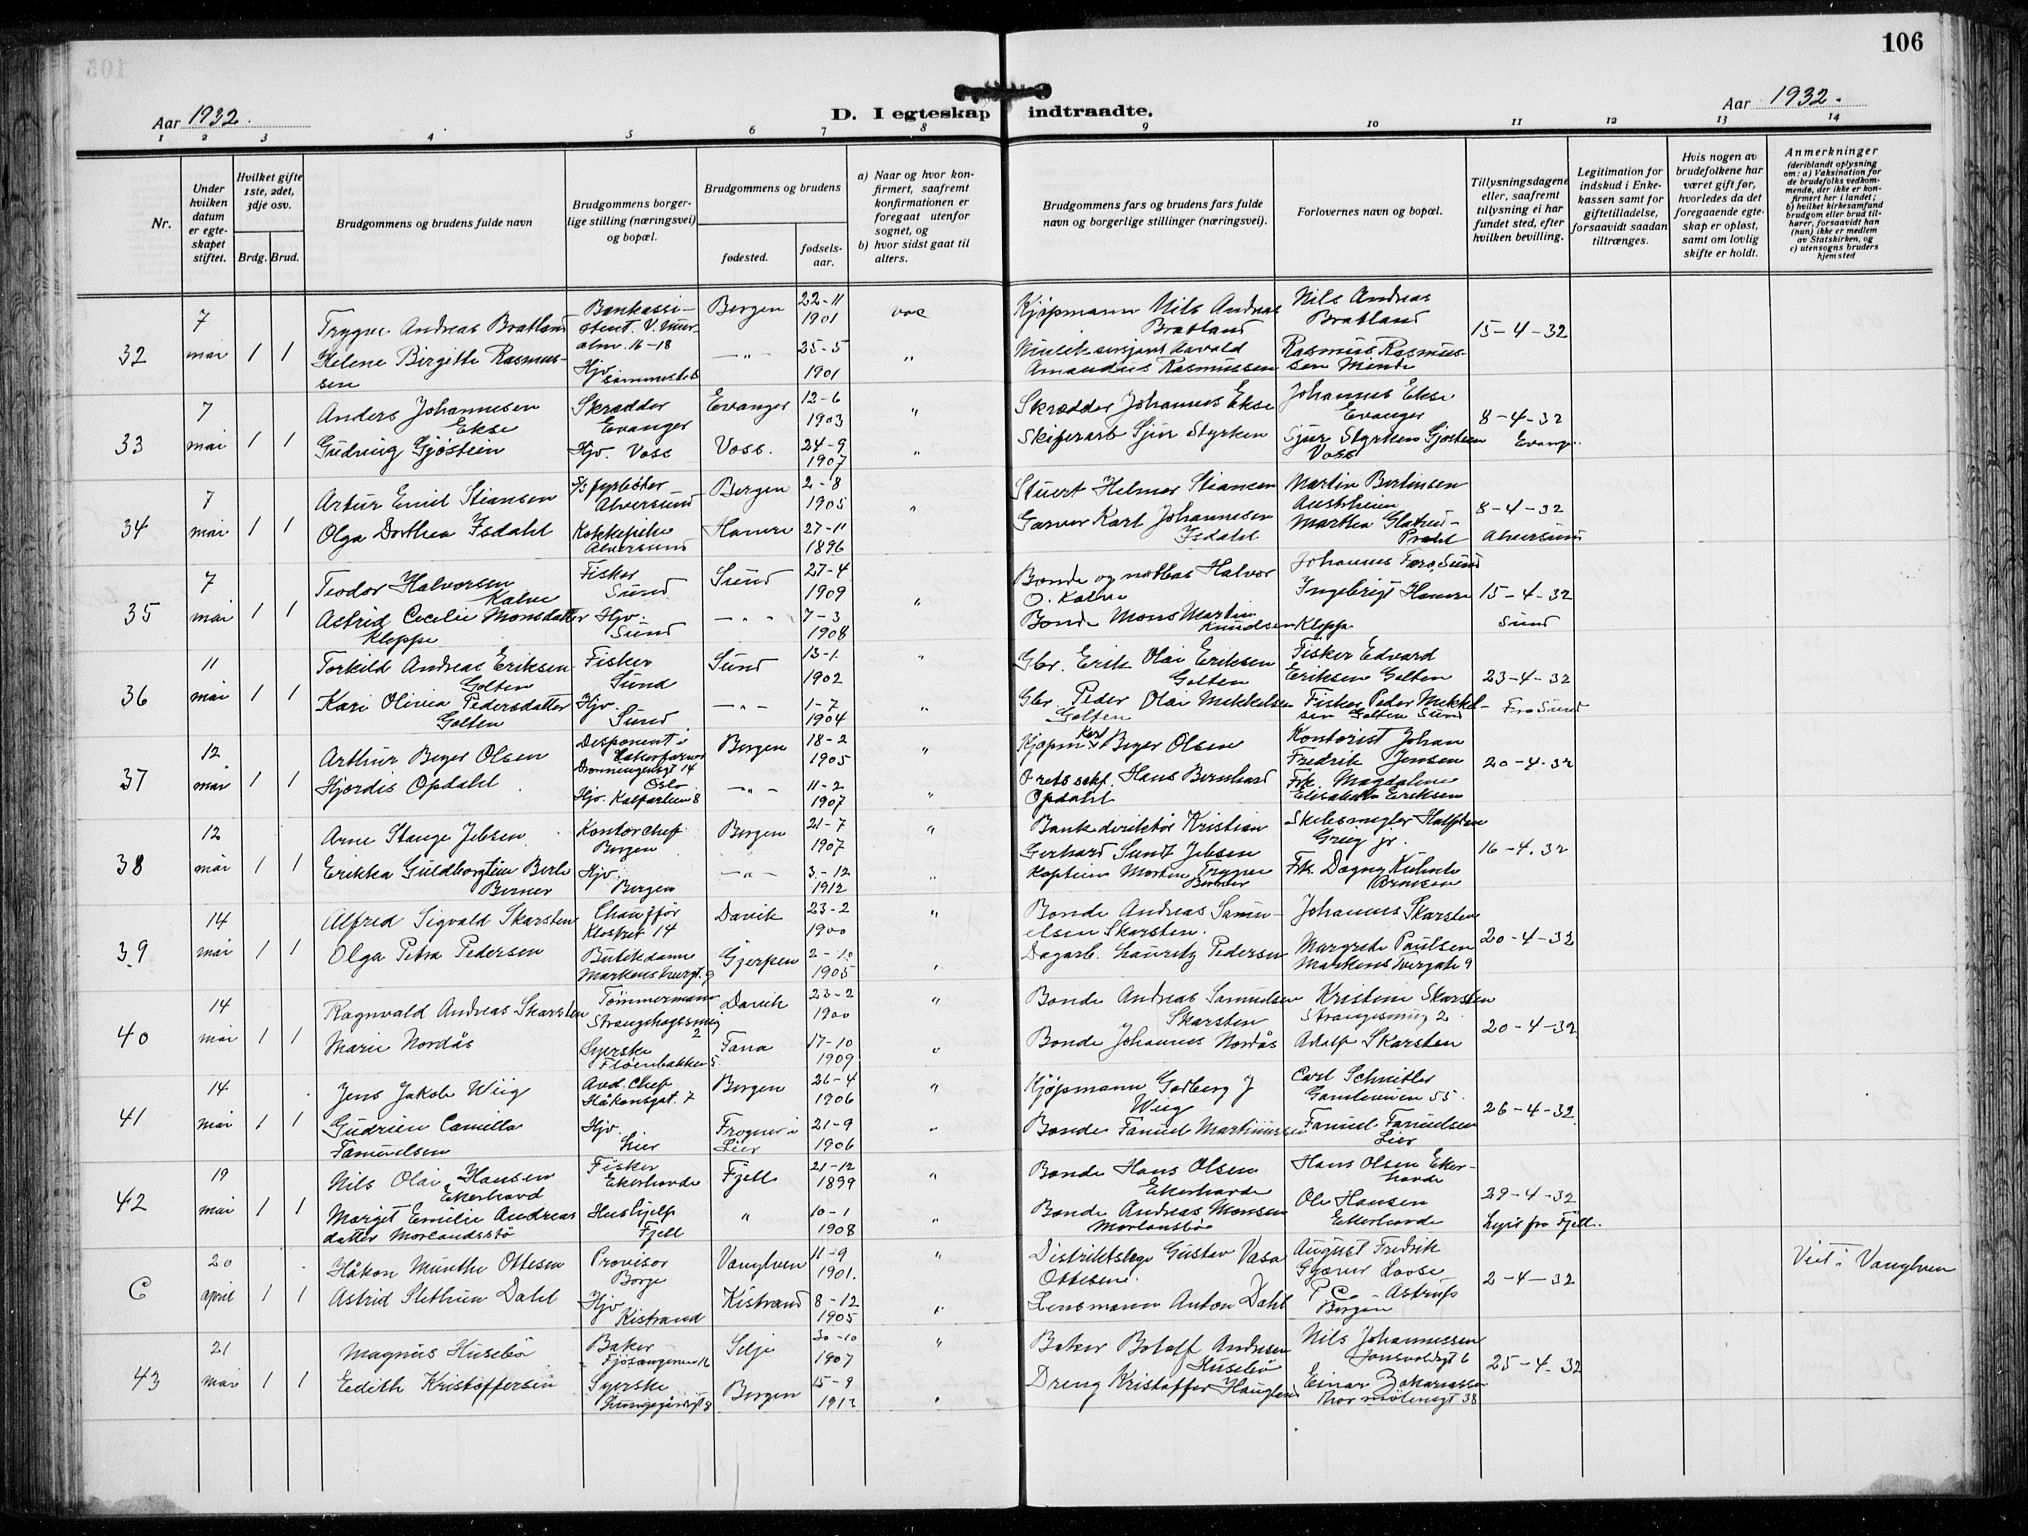 106
Aar 1932.
D. I egteskap indtraadte.
Aar 1932.
1 2 3 4 5 6 7 8 9 10 11 12 13 14
Nr.
Under hvilken datum er egteskapet stiftet.
Hvilket gifte 1ste, 2det, 3dje osv.
Brdg. Brud.
Brudgommens og brudens fulde navn
Brudgommens borgerlige stilling (næringsvei) og bopæl.
Brudgommens og brudens
fødested.
fødselsaar.
a) Naar og hvor konfirmert, saafremt konfirmationen er foregaat utenfor sognet, og
b) hvor sidst gaat til alters.
Brudgommens fars og brudens fars fulde navn og borgerlige stillinger (næringsvei).
Forlovernes navn og bopæl.
Tillysningsdagene eller, saafremt tillysning ei har fundet sted, efter hvilken bevilling.
Legitimation for indskud i Enkekassen samt for giftetilladelse, forsaavidt saadan tiltrænges.
Hvis nogen av brudefolkene har været gift før, hvorledes da det foregaaende egteskap er opløst, samt om lovlig skifte er holdt.
Anmerkninger
(deriblandt oplysning om: a) Vaksination for de brudefolks vedkommende, der ikke er konfirmert her i landet; b) hvilket kirkesamfund brudgom eller brud tilhører, forsaavidt han (hun) ikke er medlem av Statskirken, og c) utensogns bruders hjemsted
32 7 mai 1 1
Trygve Andreas Bratland Bergen 22-11 1901
Kjøpmann Nils Andreas Bratland
Nils Andreas Bratland
15-4-32
Helene Birgitte Rasmussen
Hjv. sammesteds -„- 25-5 1901 „
Amandus Rasmussen
Rasmus Rasmussen Minde
33 7 mai 1 1
Anders Johannesen Ekse
Skrædder Evanger Evanger 12-6 1903 „
Skrædder Johannes Ekse
Johannes Ekse Evanger
8-4-32
Gudrig Gjøstein
Hjv. Voss Voss. 24-9 1907 „
Skiferarb Sjur Styrken
Sjur Styrken Gjøstein Voss
34 7 mai 1 1
Artur Emil Stiansen
Alversund Bergen 2-8 1905 „
Stuert Helmer Stiansen
Martin Bertinsen Austrheim
8-4-32
Alversund
Olga Dorthea Isdahl
Kokkepike Alversund Hamre 27-11 1896
Garver Karl Johannesen Isdahl
Martha
35 7 mai 1 1
Teodor Halvorsen Kalve
Fisker Sund Sund 27-4 1909 „
Bonde og notbas Halvor O. Kalve
Johannes
15-4-32
Sund
Astrid Cecelie Monsdatter Kleppe
Hjv. Sund -„- 7-3 1908
Bonde Mons Martin Knudsen Kleppe
Ingebrigt Hamre
36 11 mai 1 1
Torkild Andreas Eriksen Golten
Fisker Sund Sund 13-1 1902 „
Gbr. Erik Olai Eriksen Golten
Fisker Edvard Eriksen Golten
23-4-32
Fra Sund
Kari Olina Pedersdatter Golten
Hjv. Sund -„- 1-7 1904 „
Gbr. Peder Olai Mikkelsen Golten
Fisker Peder Mikkelsen Golten Sund
37 12 mai 1 1
Arthur Beyer Olsen
Disponent i Dronningensgt 14 Oslo
Bergen 18-2 1905 „
Kjøpm. Karl Beyer Olsen
Kontorist Johan Fredrik Jensen
20-4-32
Hjördis Opdahl
Hjv. Kalfarlien 8 -„- 11-2 1907 „
Hans Bernhard Opdahl
Frk. Magdalene Elisabeth Eriksen
38 12 mai 1 1
Arne Stange Jebsen
Kontorchef Bergen Bergen 21-7 1907 „
Bankdirektør Kristian Gerhard Sundt Jebsen
Skibsmegler Halfdan Grieg jr.
16-4.32
Erikka Guldborg Berner
Hjv. Bergen -„- 3-12 1912
Kaptein Morten Trygve Berner
Frk. Dagny Arnesen
39 14 mai 1 1
Alfred Sigvald Skarsten
Chauffør Klostret 14 Davik 23-2 1900 „
Bonde Andreas Samuelsen Skarsten.
Johannes Skarsten
20-4-32
Olga Petra Pedersen
Butikdame Gjerpen 2-10 1905
Dagarb. Lauritz Pedersen
Margrete Paulsen Markens Tvergate 9
40 14 mai 1 1
Ragnvald Andreas Skarsten
Tömmermann Davik 23-2 1900 „
Bonde Andreas Samuelsen Skarsten
Kristine Skarsten
20-4-32
Marie Nordås
Syerske Fløenbakken 5 Fana 17-10 1909
Bonde Johannes Nordås
Adolf Skarsten
41 14 mai 1 1
Jens Jakob Wiig
Avd. Chef Håkonsgat. 7 Bergen 26-4 1906 „
Kjøpmann Godberg J Wiig
Carl Schnitler
26-4-32
Camilla Fanuelsen
Hjv. Lier Frogner i Lier 21-9 1906
Bonde Fanuel
Fanuel Fanuelsen Lier
42 19 mai 1 1
Nils Olai Hansen Ekerhovd
Fisker Ekerhovde Fjell 21-12 1899 „
Bonde Hans Olsen Ekerhovde
Hans Olsen Ekerhovde
29-4-32
Lyst fra Fjell.
Marget Emilie Andreasdatter Morlandsstø
Hushjelp Fjell „ 10-1 1908 „
Bonde Andreas Monsen
Ole Hansen Ekerhovde
C 20 april 1 1
Håkon Munthe Ottesen
Provisor Borge Vanylven 11-9 1901. „
Distriktslege Gustav Vasa Ottesen.
August Fredrik
2-4-32
Viet i Vanylven
Astrid Dahl
Hjv Kistrand Kistrand 8-12 1905
Lensmann Anton Dahl
Astrup Bergen
43 21 mai 1 1
Magnus Husebö
Baker Selje 30-10 1907 „
Baker Botolf Andersen Husebö
Nils Johannessen
25-4.32
Edith Kristoffersen
Syerske Bergen 15-9
Dreng Kristoffer
Einar Zakariassen Thormølensgt 38